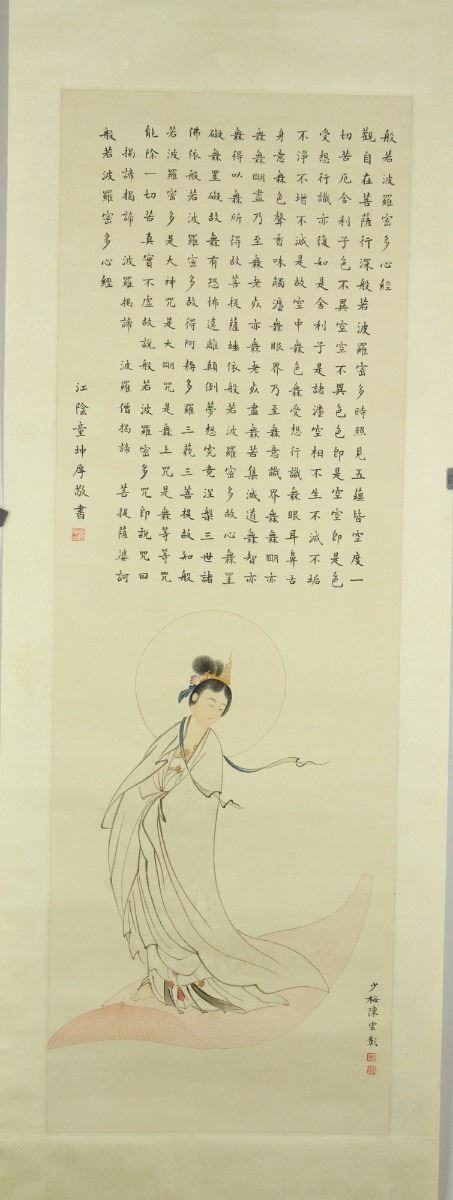 般若波羅密多心經
觀自在菩薩行深般若波羅密多時照見五蘊皆空度一
切苦厄舍利子色不異空空不異色色即是空空即是色
受想行識亦復如是舍利子是諸灋空相不生不滅不垢
不淨不增不滅是故空中無色無受想行識無眼耳鼻舌
身意無色聲香味觸灋無眼界乃至無意識界無無明亦
無無明盡乃至無老死亦無老死盡無苦集滅道無智亦
無得以無所得故菩提薩埵依般若波羅密多故心無罣
礙無罣礙故無有恐怖遠離顛倒夢想究竟涅槃三世諸
佛依般若波羅密多故得阿耨多羅三藐三菩提故知般
若波羅密多是大神咒是大明咒是無上咒是無等等咒
能除一切苦真實不虛故說般若波羅密多咒即說咒曰
揭諦揭諦 波羅揭諦 波羅僧揭諦 菩提薩婆訶
般若波羅密多心經
江陰童坤厚敬書
少梅陳雲彰